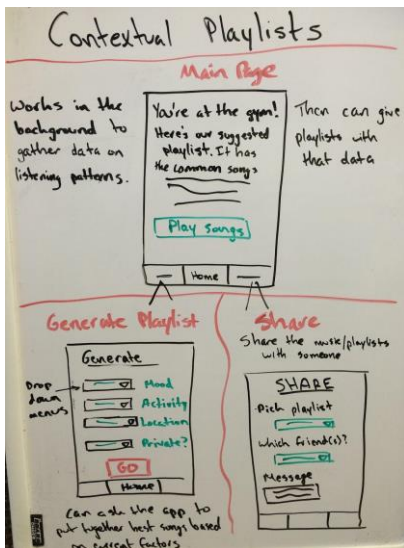 Contextual Playlists
Main Page
Works in the
background to
gather data on
listening patterns.
You're at the gym!
Here's our suggested
playlist. It has
the common songs
Play songs
Home
Then can give
playlists with
that data
Generate Playlist
Generate
Drop
down
menus
Mood
Activity
Location
Private?
GO
Home
can ask the app to
put together best songs based
on current factors
Share
Share the music/playlists
with someone
SHARE
Pick playlist
Which friend(s)?
Message